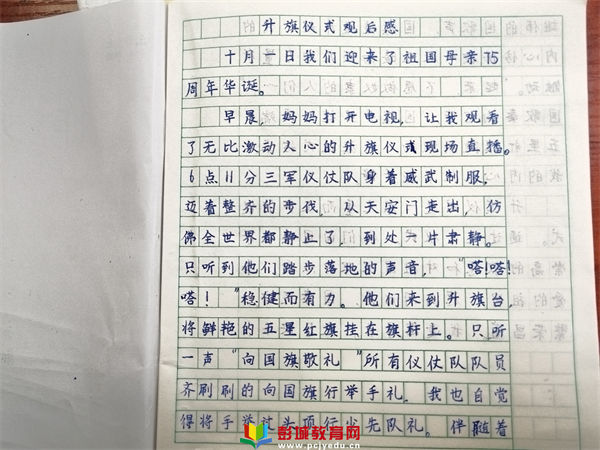 升旗仪式观后感
十月一日我们迎来了祖国母亲75
周年华诞。
早晨，妈妈打开电视，让我观看
了无比激动人心的升旗仪式现场直播。
6点11分三军仪仗队身着威武制服，
迈着整齐的步伐，从天安门走出，仿
佛全世界都静止了，到处一片肃静。
只听到他们踏步落地的声音，“嗒！嗒！
嗒！”稳健而有力。他们来到升旗台，
将鲜艳的五星红旗挂在旗杆上。只听
一声“向国旗敬礼”所有仪仗队队员
齐刷刷的向国旗行举手礼。我也自觉
得将手举过头顶行少先队礼。伴随着
彭城教育网
www.pcjyedu.cn